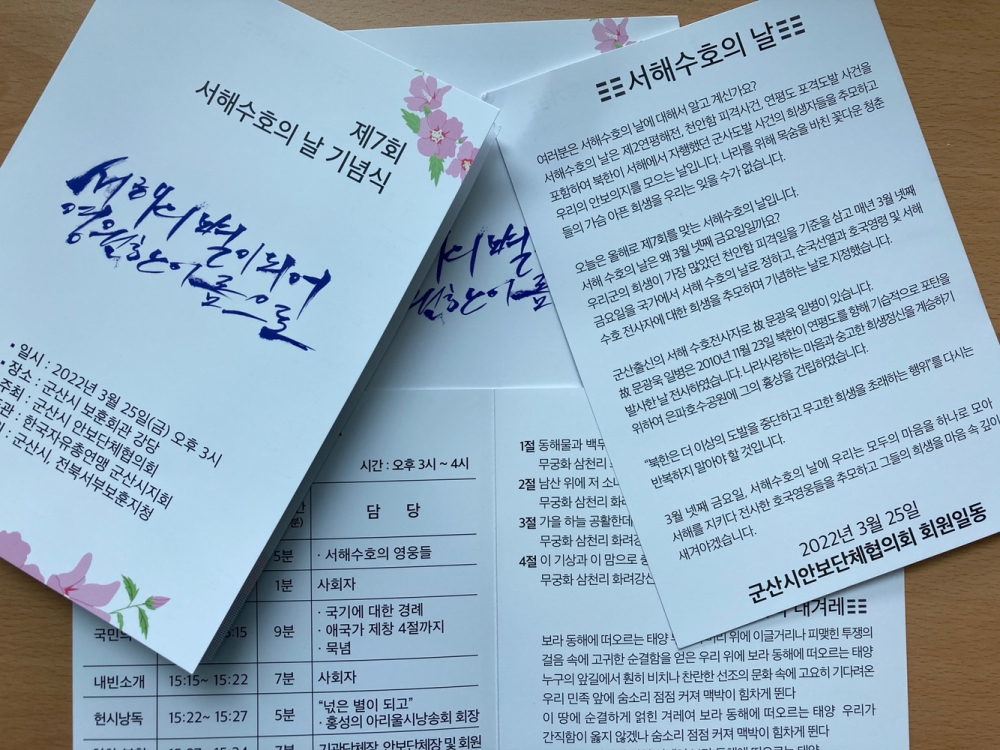 제7회
서해수호의 날 기념식
서해의 별이 되어
영원한 이름으로
• 일시 : 2022년 3월 25일(금) 오후 3시
• 장소 : 군산시 보훈회관 강당
주최 : 군산시 안보단체협의회
관 : 한국자유총연맹 군산시지회
: 군산시, 전북서부보훈지청
서해수호의 날
여러분은 서해수호의 날에 대해서 알고 계신가요?
서해수호의 날은 제2연평해전, 천안함 피격사건, 연평도 포격도발 사건을
포함하여 북한이 서해에서 자행했던 군사도발 사건의 희생자들을 추모하고
우리의 안보의지를 모으는 날입니다. 나라를 위해 목숨을 바친 꽃다운 청춘
들의 가슴 아픈 희생을 우리는 잊을 수가 없습니다.
오늘은 올해로 제7회를 맞는 서해수호의 날입니다.
서해 수호의 날은 왜 3월 넷째 금요일일까요?
우리군의 희생이 가장 많았던 천안함 피격일을 기준을 삼고 매년 3월 넷째
금요일을 국가에서 서해 수호의 날로 정하고, 순국선열과 호국영령 및 서해
수호 전사자에 대한 희생을 추모하며 기념하는 날로 지정했습니다.
군산출신의 서해 수호전사자로 故 문광욱 일병이 있습니다.
故 문광욱 일병은 2010년 11월 23일 북한이 연평도를 향해 기습적으로 포탄을
발사한 날 전사하였습니다. 나라사랑하는 마음과 숭고한 희생정신을 계승하기
위하여 은파호수공원에 그의 흉상을 건립하였습니다.
“북한은 더 이상의 도발을 중단하고 무고한 희생을 초래하는 행위”를 다시는
반복하지 말아야 할 것입니다.
3월 넷째 금요일, 서해수호의 날에 우리는 모두의 마음을 하나로 모아
서해를 지키다 전사한 호국영웅들을 추모하고 그들의 희생을 마음 속 깊이
새겨야겠습니다.
2022년 3월 25일
군산시안보단체협의회 회원일동
의 별
한 이름
시간 : 오후 3시 ~ 4시
담 당
5분 · 서해수호의 영웅들
1분 사회자
국민의 :15 9분 · 국기에 대한 경례
· 애국가 제창 4절까지
· 묵념
내빈소개 15:15~ 15:22 7분 사회자
헌시낭독 15:22~ 15:27 5분 “넋은 별이 되고”
· 홍성의 아리울시낭송회 회장
기관단체장, 안보단체장 및 회원
1절 동해물과 백두
무궁화 삼천리
2절 남산 위에 저 소나
무궁화 삼천리 화려
3절 가을 하늘 공활한데
무궁화 삼천리 화려강
4절 이 기상과 이 맘으로
무궁화 삼천리 화려강산
겨레
보라 동해에 떠오르는 태양 머리 위에 이글거리나 피맺힌 투쟁의
걸음 속에 고귀한 순결함을 얻은 우리 위에 보라 동해에 떠오르는 태양
누구의 앞길에서 훤히 비치나 찬란한 선조의 문화 속에 고요히 기다려온
우리 민족 앞에 숨소리 점점 커져 맥박이 힘차게 뛴다
이 땅에 순결하게 얽힌 겨레여 보라 동해에 떠오르는 태양 우리가
간직함이 옳지 않겠나 숨소리 점점 커져 맥박이 힘차게 뛴다